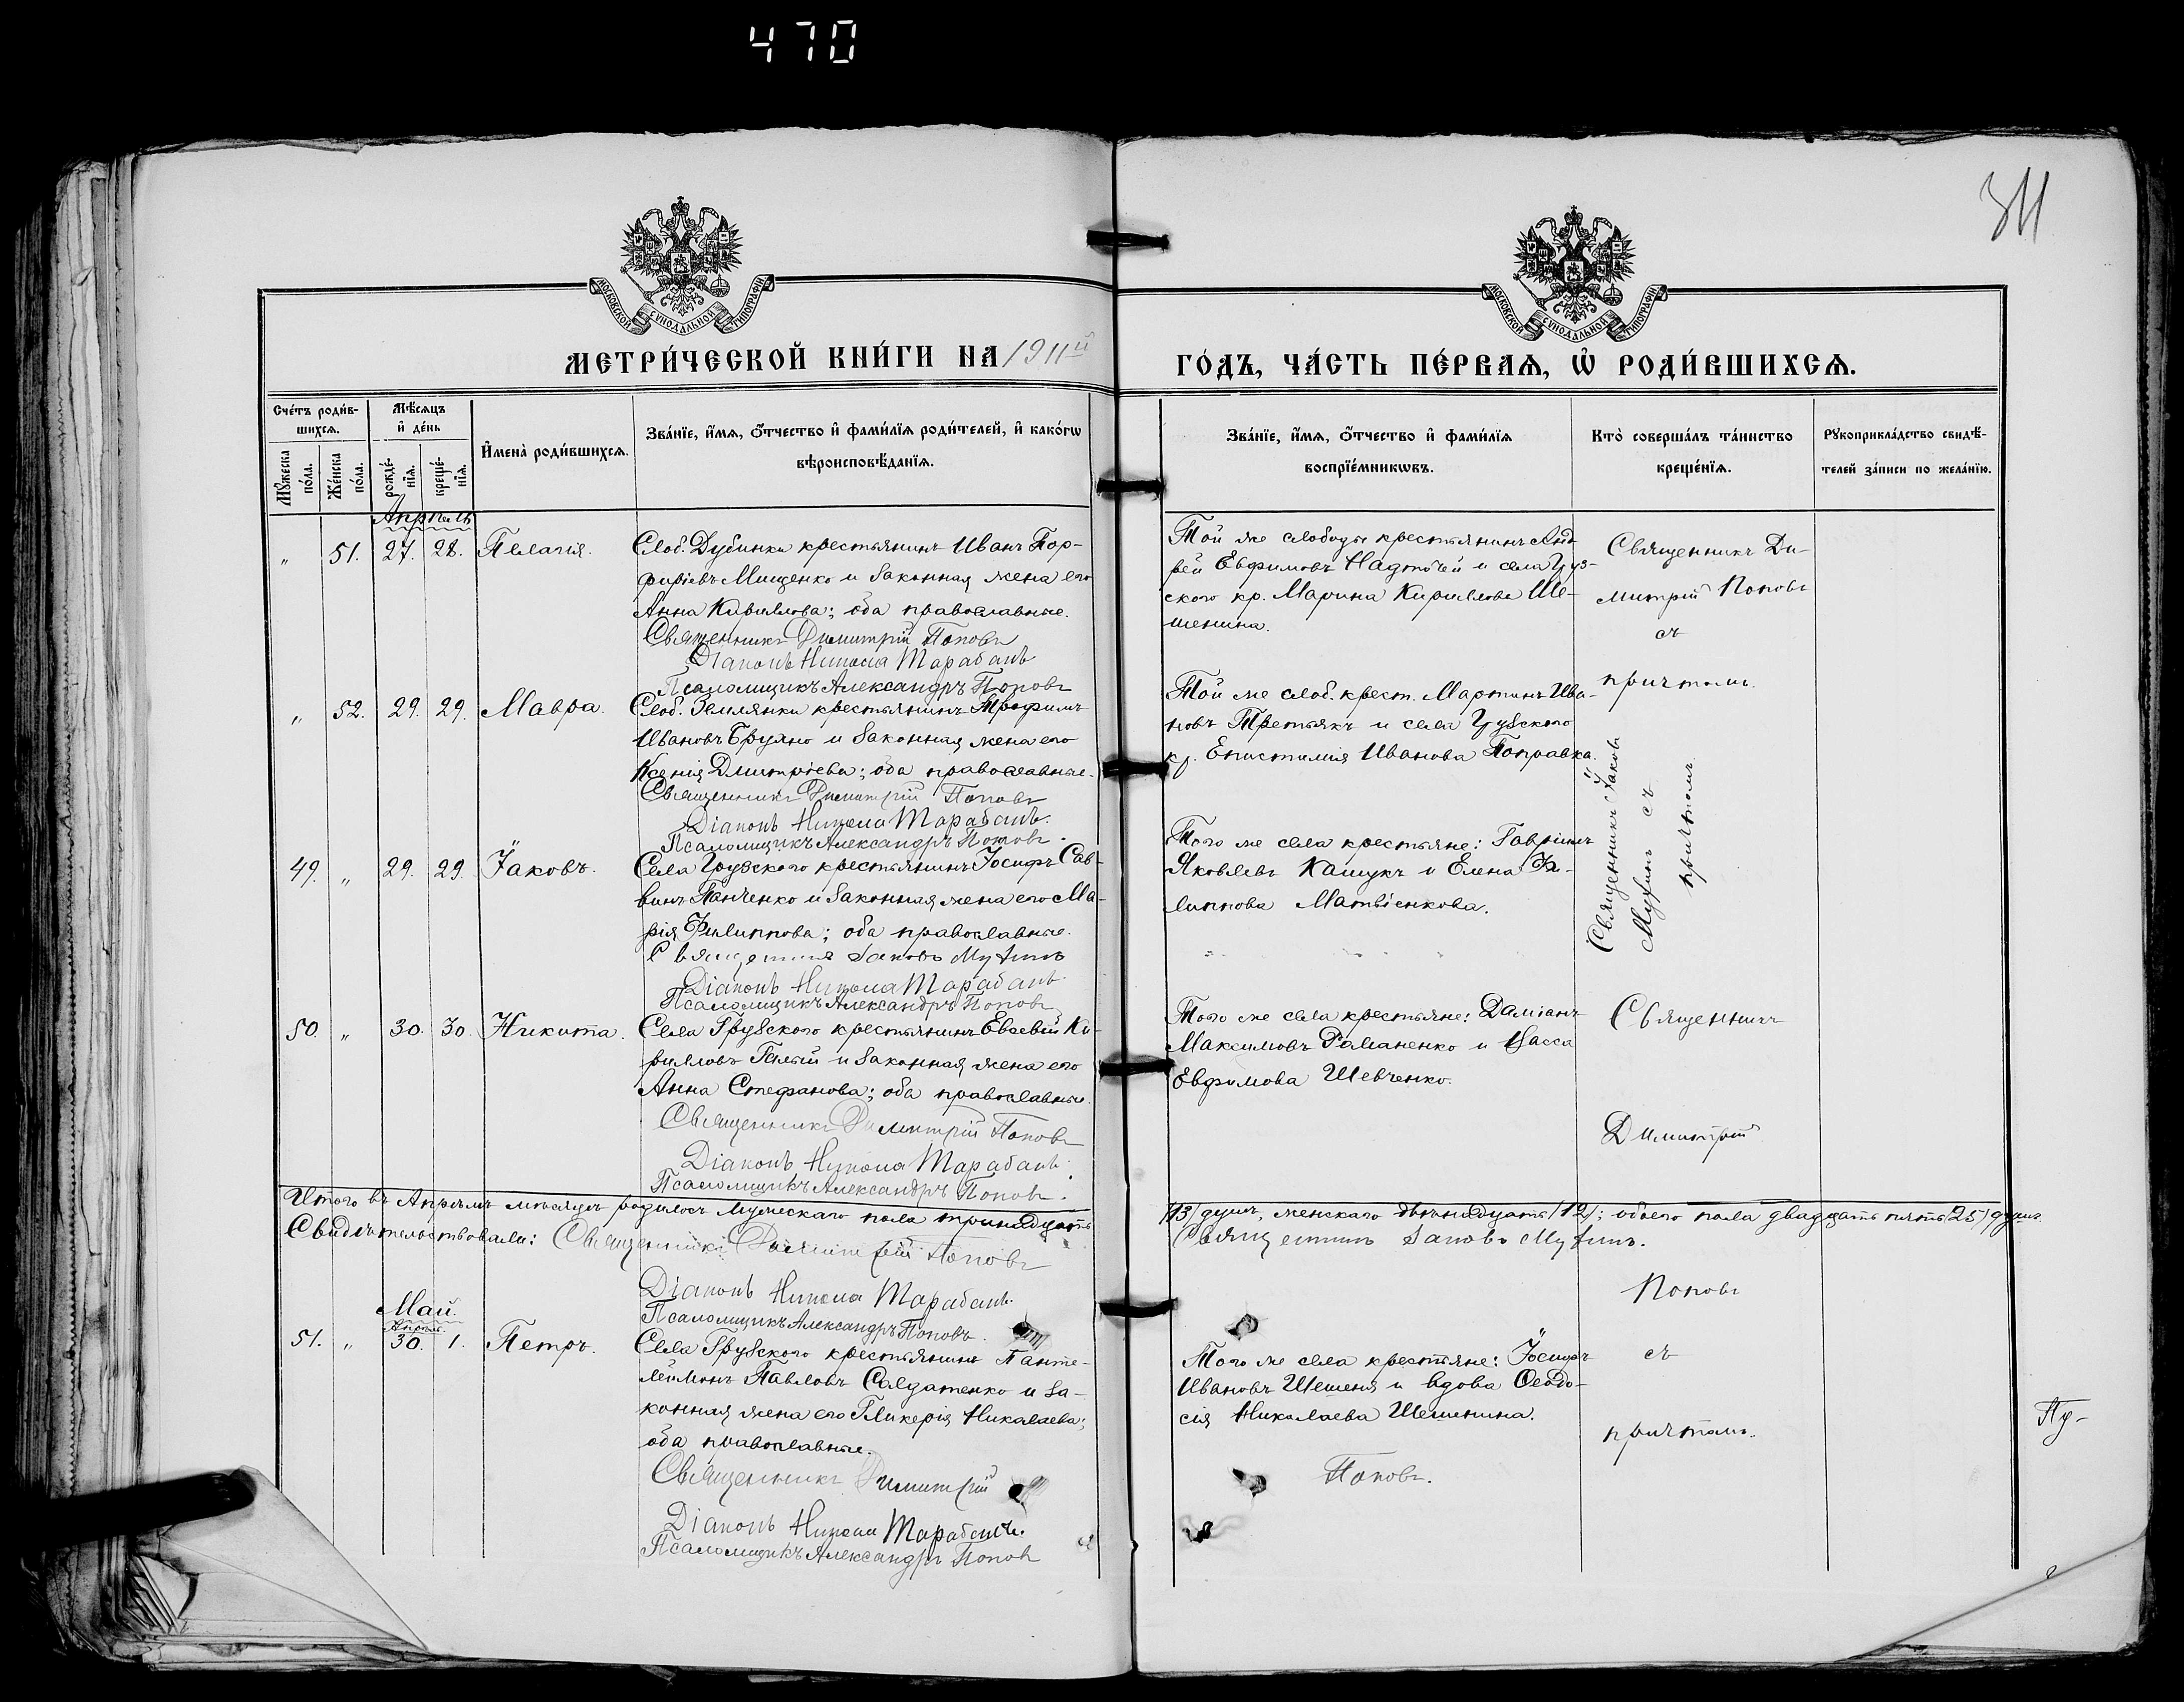 470
311
МОСКОВСКОЙ СѴНОДАЛЬНОЙ ТИПОГРАФІИ
МОСКОВСКОЙ СѴНОДАЛЬНОЙ ТИПОГРАФІИ
МЕТРИ́ЧЕСКОЙ КНИ́ГИ НА 1911й
ГО́ДЪ, ЧА́СТЬ ПЕ́РВАѦ, Ѡ҆ РОДИ́ВШИХСѦ.
Сче́тъ роди́в-
шихсѧ.
Мѣ́сѧцъ
и҆ де́нь
И҆мена̀ роди́вшихсѧ.
Зва́нїе, и҆́мѧ, ѻ҆́тчество и҆ фами́лїѧ роди́телей, и҆ како́гѡ
вѣроисповѣ́данїѧ.
Мꙋ́жеска
по́ла.
Же́нска
по́ла.
рожде́-
нїѧ.
креще́-
нїѧ.
Зва́нїе, и҆́мѧ, ѻ҆́тчество и҆ фами́лїѧ
воспрїе́мникѡвъ.
Кто̀ соверша́лъ та́инство
креще́нїѧ.
Рꙋкоприкла́дство свидѣ́-
телей за́писи по жела́нїю.
Апрѣль
" 51. 27. 28. Пелагія.
Слоб. Дубинки крестьянинъ Иванъ Пор-
фиріевъ Мищенко и законная жена его
Анна Кирилова; оба православные.
Священникъ Димитрій Поповъ
Діаконъ Никола Тарабанъ
Псаломщикъ Александръ Поповъ
Той же слободы крестьянинъ Анд-
рей Евфимовъ Надточей и села Груз-
ского кр. Марина Кириллова Ше-
шенина.
Священникъ Ди-
митрій Поповъ
съ
причтомъ.
" 52. 29. 29. Мавра.
Слоб. Землянки крестьянинъ Трофимъ
Ивановъ Бруяно и законная жена его
Ксенія Дмитріева; оба православные.
Священникъ Димитрій Поповъ
Діаконъ Никола Тарабанъ.
Псаломщикъ Александръ Поповъ.
Той же слоб. крест. Мартинъ Ива-
новъ Третьякъ и села Грузского
кр. Епистимія Иванова Поправка.
49. " 29. 29. Іаковъ.
Села Грузского крестьянинъ Іосифъ Сав-
винъ Панченко и законная жена его Ма-
рія Филиппова; оба православные.
Священникъ Іаковъ Мухинъ
Діаконъ Никола Тарабанъ.
Псаломщикъ Александръ Поповъ
Того же села крестьяне: Гавріилъ
Яковлевъ Кащукъ и Елена Фи-
липпова Матвіенкова.
Священникъ Іаковъ
Мухинъ съ
причтомъ
50. " 30. 30. Никита.
Села Грузского крестьянинъ Евсевій Ки-
рилловъ Голый и законная жена его
Анна Стефанова; оба православные.
Священникъ Димитрій Поповъ
Діаконъ Никола Тарабанъ.
Псаломщикъ Александръ Поповъ.
Того же села крестьяне: Даміанъ
Максимовъ Романенко и Васса
Евфимова Шевченко.
Священникъ
Димитрій
Итого въ Апрѣлѣ мѣсяцѣ родилось мужескаго пола тринадцать
/13/ душъ, женскаго двѣнадцать /12/; обоего пола двадцать пять /25/ душъ.
Свидѣтельствовали: Священникъ Димитрій Поповъ
Священникъ Іаковъ Мухинъ.
Діаконъ Никола Тарабанъ.
Псаломщикъ Александръ Поповъ.
Поповъ
Май.
Апрѣль.
51. " 30. 1. Петръ.
Села Грузского крестьянинъ Панте-
леимонъ Павловъ Солдатенко и за-
конная жена его Гликерія Николаева;
оба православные.
Священникъ Димитрій
Діаконъ Никола Тарабанъ.
Псаломщикъ Александръ Поповъ
Того же села крестьяне: Іосифъ
Ивановъ Шешеня и вдова Ѳеодо-
сія Николаева Шешенина.
Поповъ.
съ
причтомъ.
Пу-